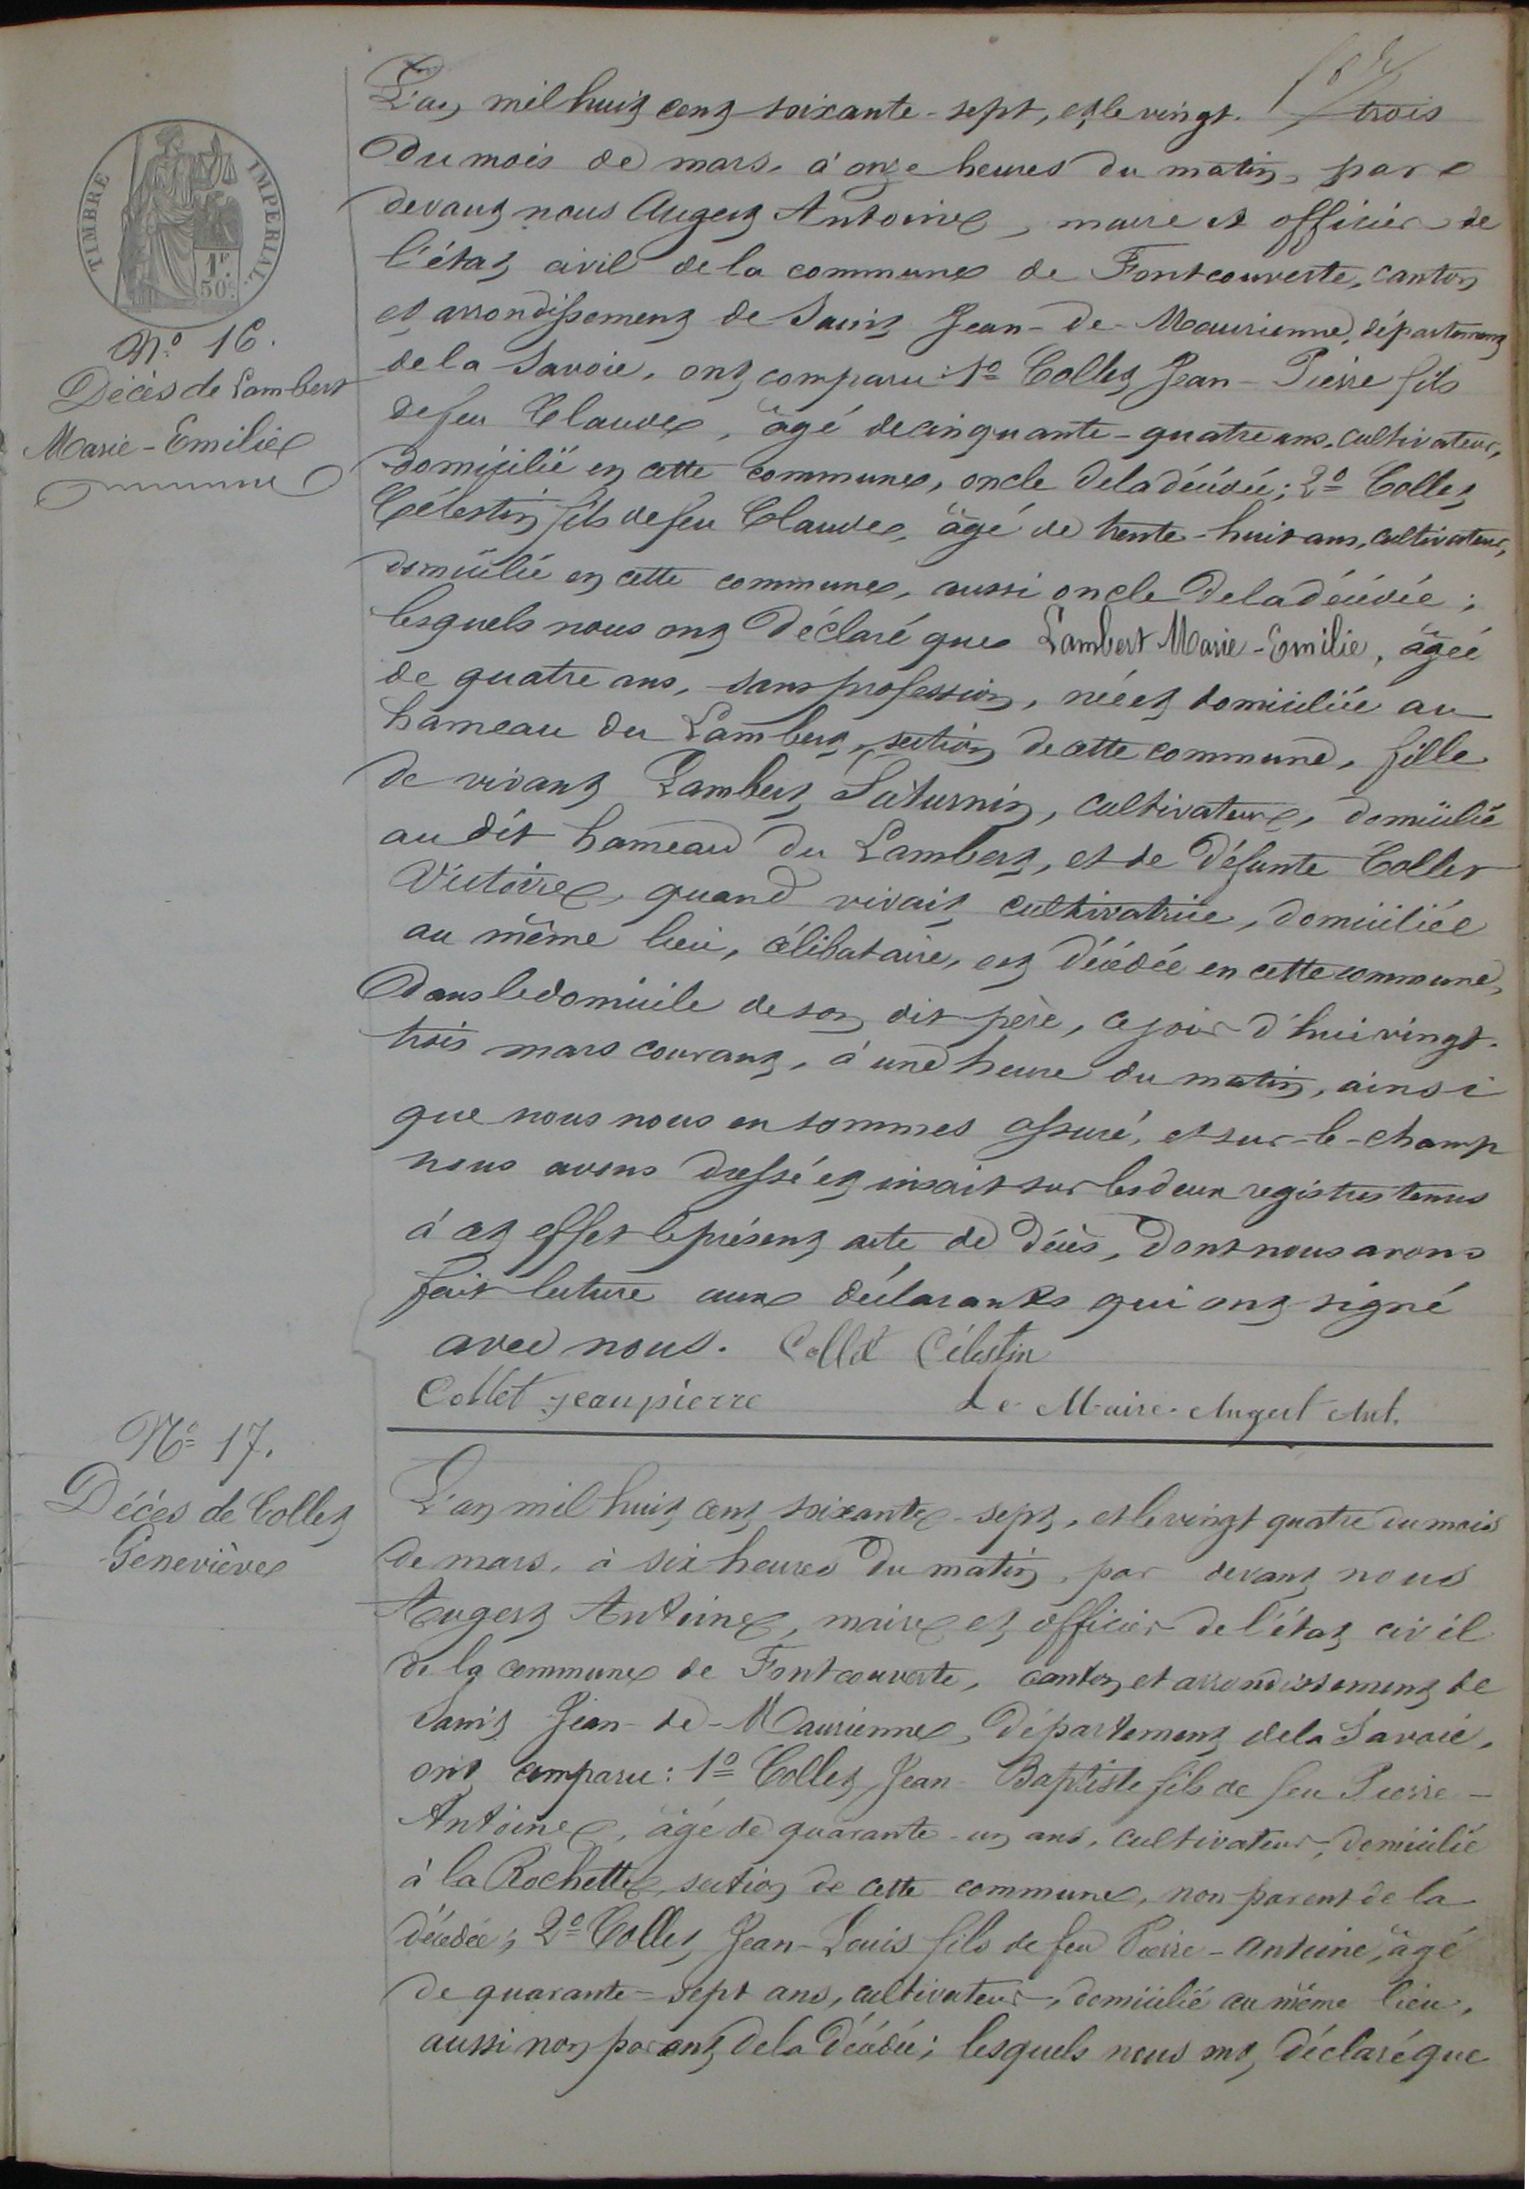 L'an mil huit cent soixante-sept, et le vingt-trois
du mois de mars, à onze heures du matin, par
devant nous Augert Antoine, maire et officier de
l'état civil de la commune de Fontcouverte, canton
et arrondissement de Saint Jean-de-Maurienne, département
de la Savoie, ont comparu: 1º Collet Jean-Pierre fils
de feu Claude, âgé de cinquante-quatre ans, cultivateur,
domicilié en cette commune, oncle de la décédée; 2º Collet
Célestin fils de feu Claude, âgé de trente-huit ans, cultivateur,
domicilié en cette commune, aussi oncle de la décédée;
lesquels nous ont déclaré que Lambert Marie-Emilie, âgée
de quatre ans, sans profession, née et domiciliée au
hameau du Lambert, section de cette commune, fille
de vivant Lambert Saturnin, cultivateur, domicilié
au dit hameau du Lambert, et de défunte Collet
Victoire, quand vivait cultivatrice, domiciliée
au même lieu, célibataire, est décédée en cette commune,
dans le domicile de son dit père, ce jour d'hui vingt-
trois mars courant, à une heure du matin, ainsi
que nous nous en sommes assuré, et sur-le-champ
nous avons dressé et inscrit sur les deux registres tenus
à cet effet le présent acte de décès, dont nous avons
fait lecture aux déclarants qui ont signé
avec nous. Collet Célestin
Collet jeanpierre Le Maire Augert Ant.
TIMBRE IMPERIAL
1F
50C
Nº 16.
Décès de Lambert
Marie-Emilie
Nº 17.
Décès de Collet
Geneviève
L'an mil huit cent soixante-sept, et le vingt quatre du mois
de mars, à six heures du matin, par devant nous
Augert Antoine, maire et officier de l'état civil
de la commune de Fontcouverte, canton et arrondissement de
Saint Jean-de-Maurienne, département de la Savoie,
ont comparu: 1º Collet Jean-Baptiste fils de feu Pierre-
Antoine, âgé de quarante-un ans, cultivateur, domicilié
à la Rochette, section de cette commune, non parent de la
décédée; 2º Collet Jean-Louis fils de feu Pierre-Antoine, âgé
de quarante-sept ans, cultivateur, domicilié au même lieu,
aussi non parent de la décédée; lesquels nous ont déclaré que